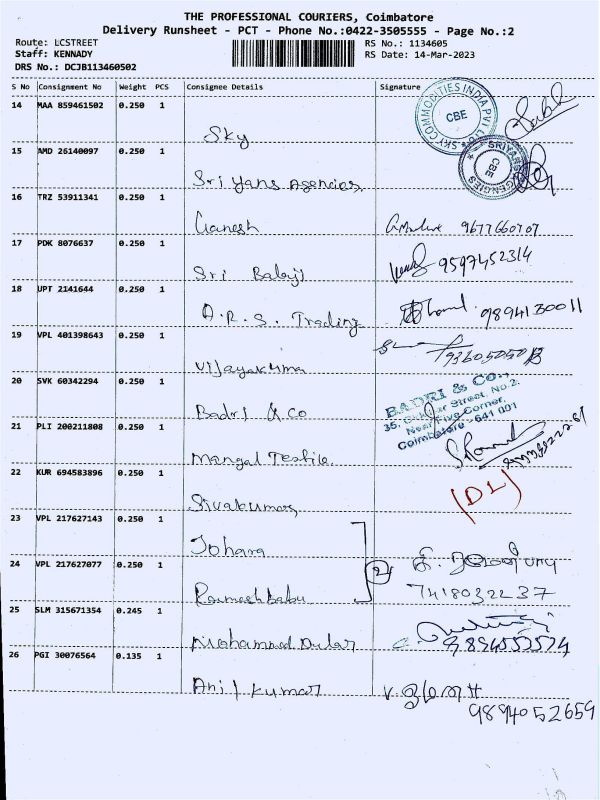 THE PROFESSIONAL COURIERS, Coimbatore
Delivery Runsheet - PCT - Phone No.:0422-3505555 - Page No.:2
Route: LCSTREET
Staff: KENNADY
DRS No.: DCJB113460502
RS No.: 1134605
RS Date: 14-Mar-2023
S No Consignment No Weight PCS Consignee Details Signature
14 MAA 859461502 0.250 1
SKY COMMODITIES INDIA PVT LTD
CBE
Sky
15 AMD 26140097 0.250 1
SRIYANS AGENCIES
CBE
Sri Yans Agencies
16 TRZ 53911341 0.250 1
Ganesh 9677660707
17 PDK 8076637 0.250 1
Sri Balaji 9597452314
18 UPT 2141644 0.250 1
A.R.S. Trading 9894130011
19 VPL 401398643 0.250 1
Vijayakuma
20 SVK 60342294 0.250 1
BADRI & Co.,
Badri & Co
35, Street, No.2,
Near Five Corner,
Coimbatore - 641 001
21 PLI 200211808 0.250 1
Mangal Textile
22 KUR 694583896 0.250 1
(DL)
Sivakumar
23 VPL 217627143 0.250 1
Johara
24 VPL 217627077 0.250 1
2
Rameshbabu 7418032237
25 SLM 315671354 0.245 1
Mohammad
26 PGI 30076564 0.135 1
Anil kumar
9894052659